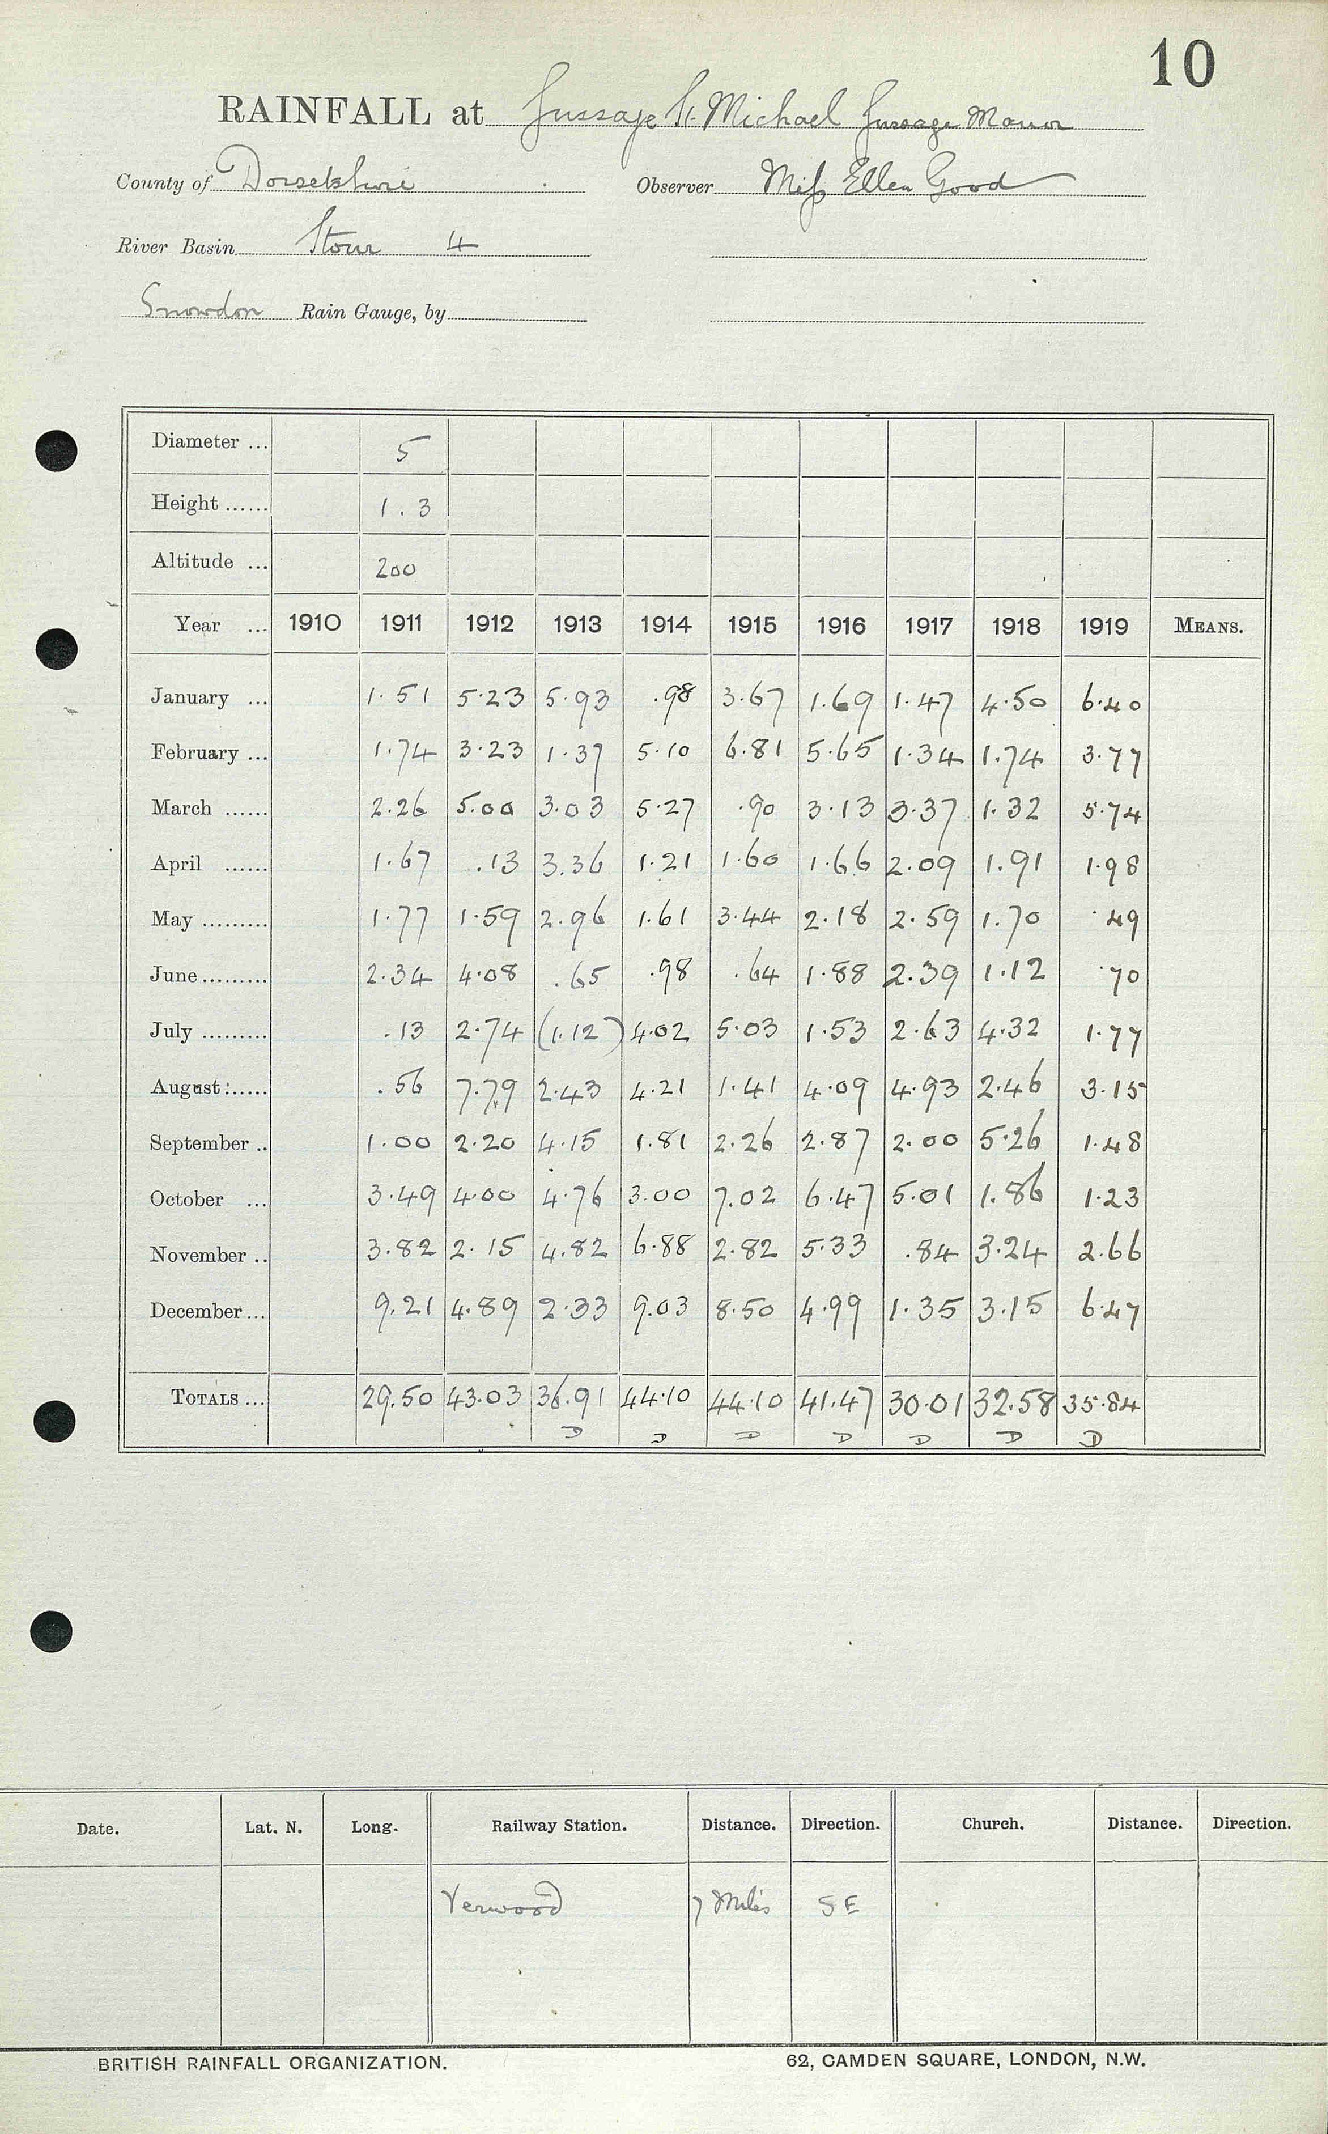 10
RAINFALL at Gussage St. Michael Gussage Manor
County of Dorsetshire Observer Miss Ellen Good
River Basin Stour 4
Snowdon Rain Gauge, by
Diameter ... 5
Height ...... 1.3
Altitude ... 200
Year ... 1910 1911 1912 1913 1914 1915 1916 1917 1918 1919 MEANS.
January ... 1.51 5.23 5.93 .98 3.67 1.69 1.47 4.50 6.40
February ... 1.74 3.23 1.37 5.10 6.81 5.65 1.34 1.74 3.77
March ...... 2.26 5.00 3.03 5.27 .90 3.13 3.37 1.32 5.74
April ...... 1.67 .13 3.36 1.21 1.60 1.66 2.09 1.91 1.98
May ......... 1.77 1.59 2.96 1.61 3.44 2.18 2.59 1.70 .49
June ......... 2.34 4.08 .65 .98 .64 1.88 2.39 1.12 .70
July ......... .13 2.74 (1.12) 4.02 5.03 1.53 2.63 4.32 1.77
August ...... .56 7.79 2.43 4.21 1.41 4.09 4.93 2.46 3.15
September .. 1.00 2.20 4.15 1.81 2.26 2.87 2.00 5.26 1.48
October ... 3.49 4.00 4.76 3.00 7.02 6.47 5.01 1.86 1.23
November .. 3.82 2.15 4.82 6.88 2.82 5.33 .84 3.24 2.66
December ... 9.21 4.89 2.33 9.03 8.50 4.99 1.35 3.15 6.47
TOTALS ... 29.50 43.03 36.91 44.10 44.10 41.47 30.01 32.58 35.84
D D D D D D D
Date. Lat. N. Long. Railway Station. Distance. Direction. Church. Distance. Direction.
Verwood 7 Miles SE
BRITISH RAINFALL ORGANIZATION. 62, CAMDEN SQUARE, LONDON, N.W.